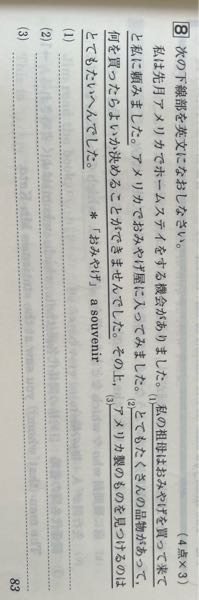 8 次の下線部を英文になおしなさい。 (4点×3)
私は先月アメリカでホームステイをする機会がありました。(1)私の祖母はおみやげを買って来て
と私に頼みました。アメリカでおみやげ屋に入ってみました。(2)とてもたくさんの品物があって,
何を買ったらよいか決めることができませんでした。その上,(3)アメリカ製のものを見つけるのは
とてもたいへんでした。 *「おみやげ」 a souvenir
(1)
(2)
(3)
83